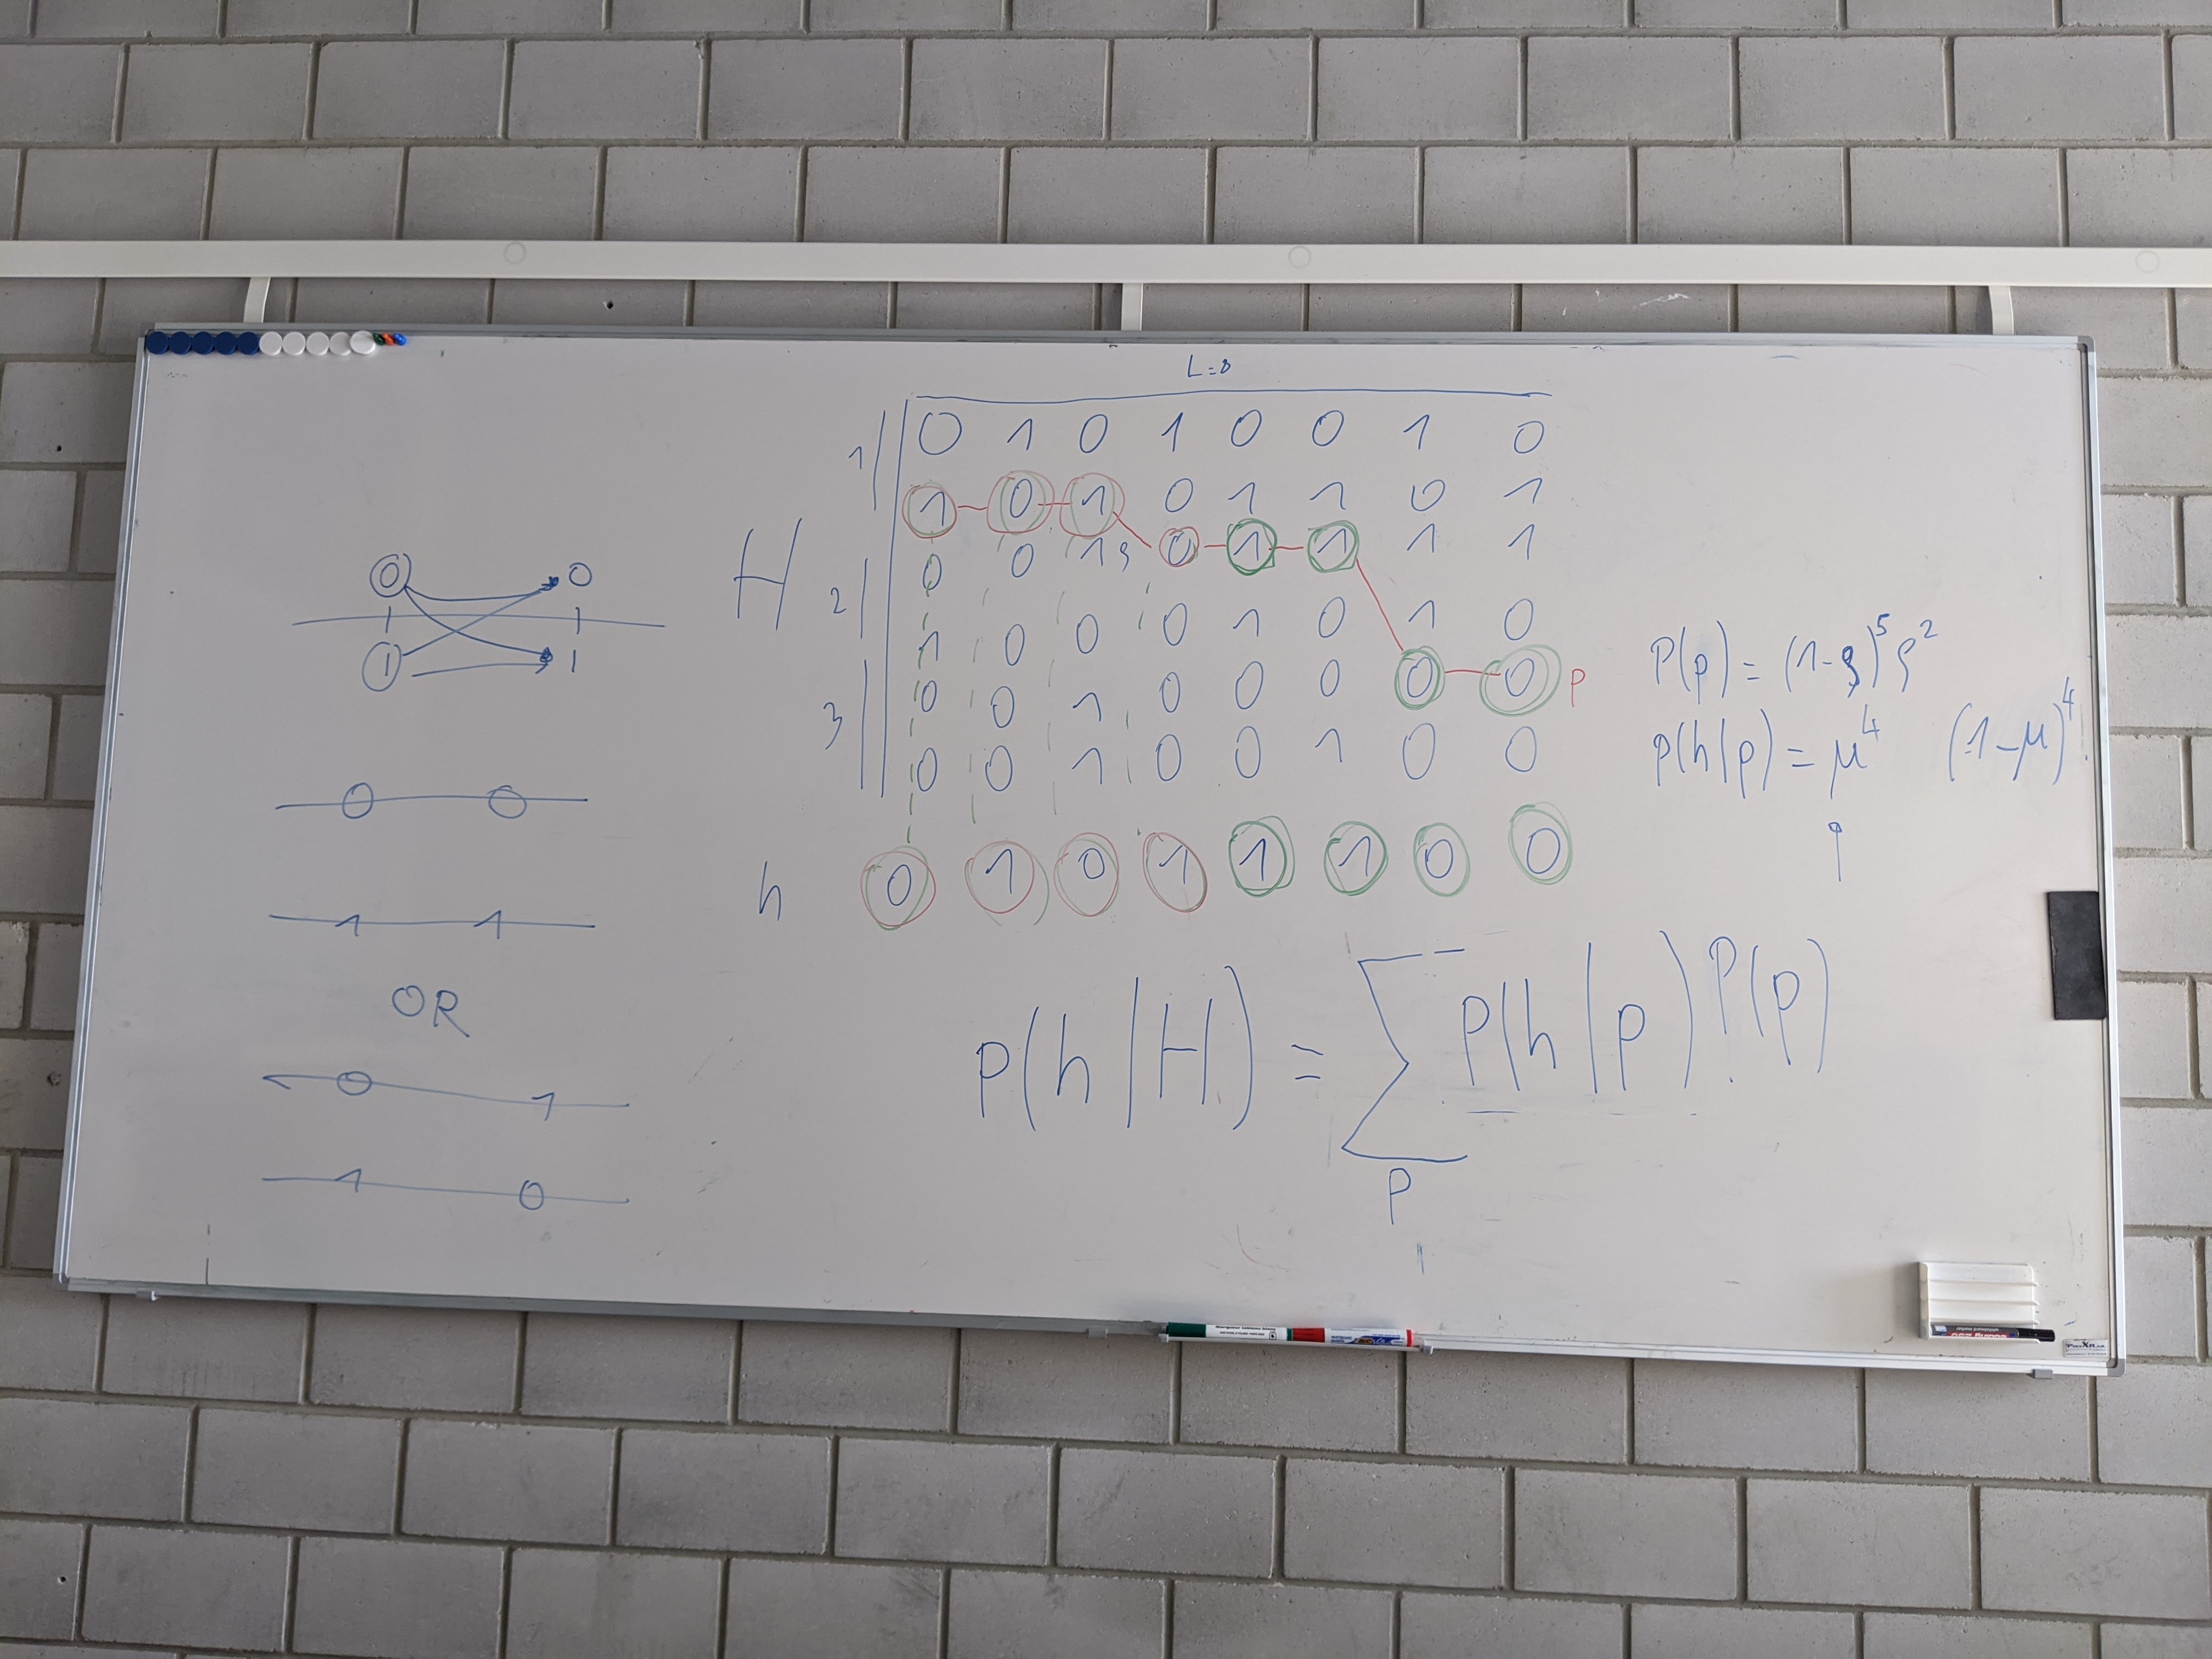 L=8
1 0 1 0 1 0 0 1 0
1 0 1 0 1 1 0 1
H 0 0 1 ρ 0 1 1 1 1
2 1 0 0 0 1 0 1 0
0 0 1 0 0 0 0 0 p
3 0 0 1 0 0 1 0 0
h 0 1 0 1 1 1 0 0
P(p) = (1-ρ)⁵ ρ²
p(h|p) = μ⁴ (1-μ)⁴
p(h|H) = ∑ P(h|p) P(p)
p
0 0
1 1
0 0
1 1
OR
0 1
1 0